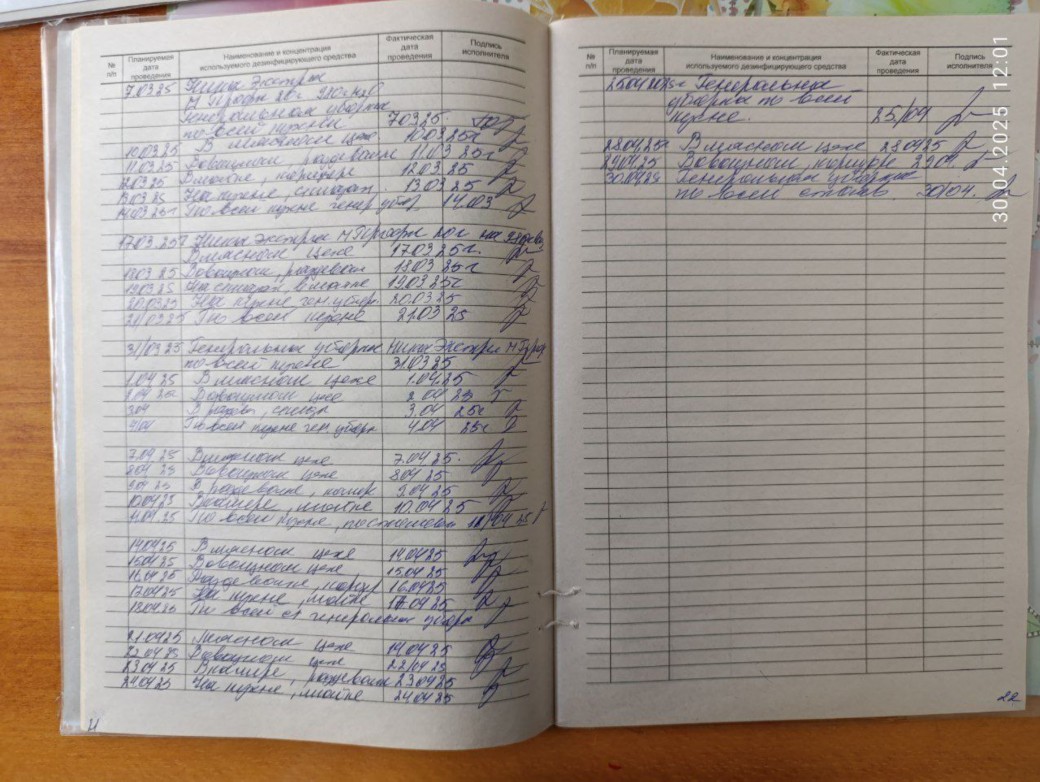 № п/п
Планируемая дата проведения
Наименование и концентрация используемого дезинфицирующего средства
Фактическая дата проведения
Подпись исполнителя
7.03.25 Ника Экстра
М Профи 20г
по всей кухни 7.03.25.
10.03.25 В мясном цехе 10.03.25г
11.03.25 Вовощном, раздевалке 11.03.25г
12.03.25 В мойке, коридоре 12.03.25
13.03.25 На кухне, складах 13.03.25
14.03.25г По всей кухне генер убор 14.03
17.03.25г Ника Экстра М Профи 20г
В мясном цехе 17.03.25г.
18.03.25 Вовощном, раздевал 18.03.25г
19.03.25 На складах в мойке 19.03.25г
20.03.25 На кухне ген. уборк 20.03.25
21/03.25 По всей кухне 21.03 25
31/03.25 Генеральная уборка Ника Экстра М Проф
по всей кухне 31.03.25
1.04.25 В мясном цехе 1.04.25
2.04.25 Вовощном цехе 2.04 25
3.04 В разев, склад 3.04 25г
4/04 По всей кухне ген. уборк 4.04 25г.
7.04.25 В мясном цехе 7.04.25.
8.04 25 Вовощном цехе 8.04 25
9.04 25 В раздевалке, коридр 9.04.25
10.04.25 , мойке 10.04.25
11.04.25 По всей кухне, 11/04 25
14.04.25 В мясном цехе 14.04.25
15.04.25 Вовощном цехе, 15.04.25
16.04.25 Раздевалке, коридр 16.04.25
17.04.25 На кухне, мойке 17.04.25
18.04.25 По всей ст генеральная уборк
21.04.25 Мясном цехе 14.04.25
22.04.25 Вовощном цехе 22/04.25
23.04.25 , раздевалке 23.04.25
24.04.25 На кухне, мойке 24.04.25
21
№ п/п
Планируемая дата проведения
Наименование и концентрация используемого дезинфицирующего средства
Фактическая дата проведения
Подпись исполнителя
25.04.2025г Генеральная
уборка по всей
кухне. 25/04
28.04.25г В мясном цехе 28.04.25
29.04.25 Вовощном, коридоре 29.04
30.04.25 Генеральная уборка
по всей столов. 30/04.
22
30.04.2025 12:01